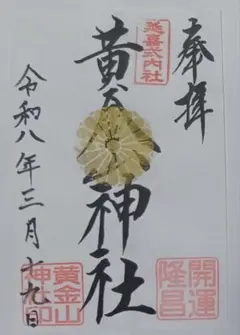 奉拝
延喜式内社
黄金山神社
開運
隆昌
令和八年三月十九日
黄金山
神社印